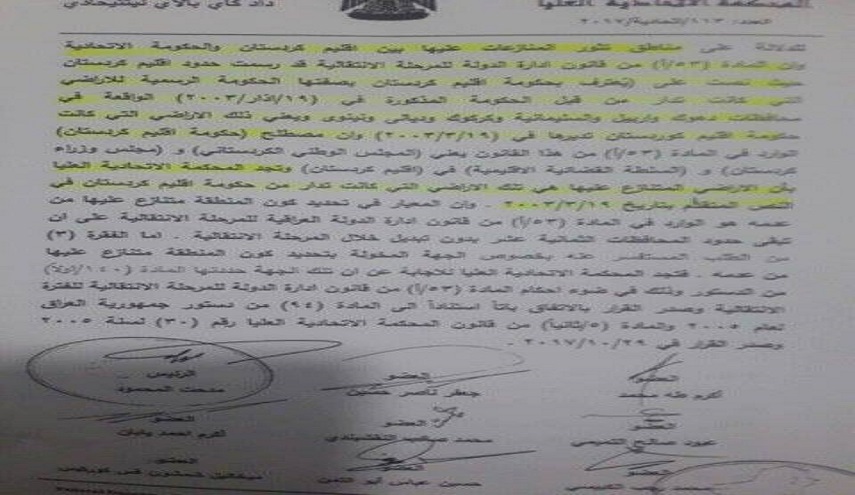 المحكمة الاتحادية العليا
العدد: ١١٣/اتحادية/٢٠١٧
للدلالة على مناطق تثور المنازعات عليها بين اقليم كردستان والحكومة الاتحادية
وان المادة (٥٣/أ) من قانون ادارة الدولة للمرحلة الانتقالية قد رسمت حدود اقليم كردستان
حيث نصت على (يُعترف بحكومة اقليم كردستان بصفتها الحكومة الرسمية للاراضي
التي كانت تدار من قبل الحكومة المذكورة في (١٩/اذار/٢٠٠٣) الواقعة في
محافظات دهوك واربيل والسليمانية وكركوك وديالى ونينوى ويعني ذلك الاراضي التي كانت
حكومة اقليم كوردستان تديرها في (٢٠٠٣/٣/١٩) وان مصطلح (حكومة اقليم كردستان)
الوارد في المادة (٥٣/أ) من هذا القانون يعني (المجلس الوطني الكردستاني) و (مجلس وزراء
كردستان) و (السلطة القضائية الاقليمية) في (اقليم كردستان) وتجد المحكمة الاتحادية العليا
بأن الاراضي المتنازع عليها هي تلك الاراضي التي كانت تدار من حكومة اقليم كردستان في
النص المتقدم بتاريخ ٢٠٠٣/٣/١٩ . وان المعيار في تحديد كون المنطقة متنازع عليها من
عدمه هو الوارد في المادة (٥٣/أ) من قانون ادارة الدولة العراقية للمرحلة الانتقالية على ان
تبقى حدود المحافظات الثمانية عشر بدون تبديل خلال المرحلة الانتقالية . اما الفقرة (٣)
من الطلب المستفسر عنه بخصوص الجهة المخولة بتحديد كون المنطقة متنازع عليها
من عدمه . فتجد المحكمة الاتحادية العليا للاجابة عن ان تلك الجهة حددتها المادة (١٤٠/اولاً)
من الدستور وذلك في ضوء احكام المادة (٥٣/أ) من قانون ادارة الدولة للمرحلة الانتقالية للفترة
الانتقالية وصدر القرار بالاتفاق باتاً استناداً الى المادة (٩٤) من دستور جمهورية العراق
لعام ٢٠٠٥ والمادة (٥/ثانياً) من قانون المحكمة الاتحادية العليا رقم (٣٠) لسنة ٢٠٠٥
وصدر القرار في ٢٠١٧/١٠/٢٩ .
العضو العضو الرئيس
اكرم طه محمد جعفر ناصر حسين مدحت المحمود
العضو العضو العضو
عبود صالح التميمي محمد صائب النقشبندي اكرم احمد بابان
العضو العضو العضو
حسين عباس ابو التمن ميخائيل شمشون قس كوركيس